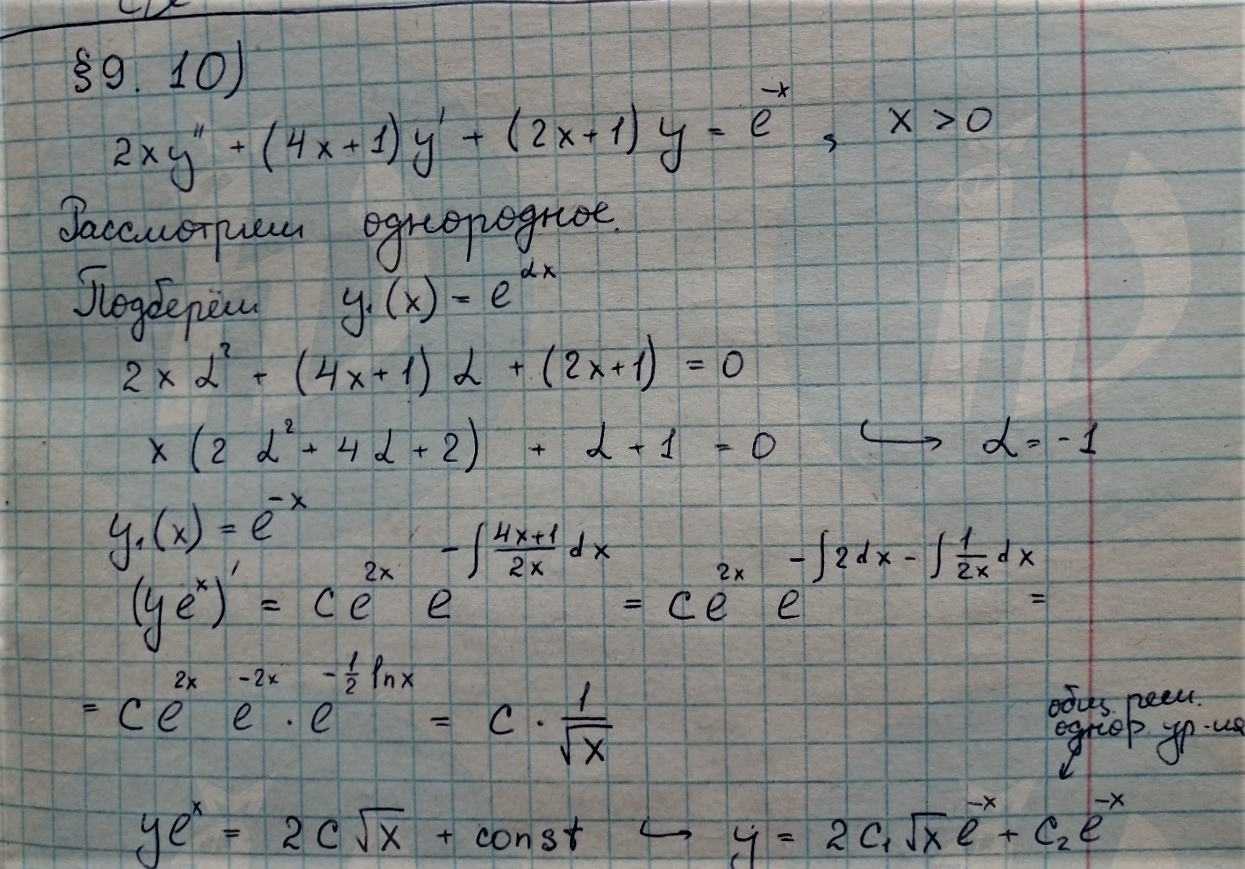 §9. 10)
2xy'' + (4x+1)y' + (2x+1)y = e^{-x}, x > 0
Рассмотрим однородное.
Подберём y₁(x) = e^{αx}
2xα² + (4x+1)α + (2x+1) = 0
x(2α² + 4α + 2) + α + 1 = 0 ↪ α = -1
y₁(x) = e^{-x}
(ye^x)' = Ce^{2x} e^{-∫\frac{4x+1}{2x}dx} = Ce^{2x} e^{-∫2dx - ∫\frac{1}{2x}dx} =
= Ce^{2x} e^{-2x} · e^{-\frac{1}{2}ln x} = C · \frac{1}{√x}
общ. реш.
однор. ур-ия
↙
ye^x = 2C√x + const ↪ y = 2C₁√x e^{-x} + C₂e^{-x}